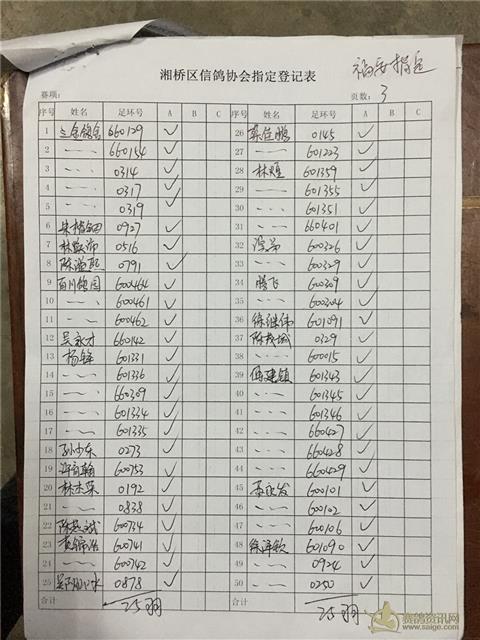 湘桥区信鸽协会指定登记表
福安指定
赛项： 页数： 3
序号 姓名 足环号 A B C 序号 姓名 足环号 A B C
1 660129 ✓ 26 0145 ✓
2 〃 660154 ✓ 27 〃 601223 ✓
3 〃 0314 ✓ 28 林雄 601359 ✓
4 〃 0317 ✓ 29 〃 601355 ✓
5 〃 0319 ✓ 30 〃 601351 ✓
6 0927 ✓ 31 〃 660401 ✓
7 0516 ✓ 32 600326 ✓
8 0791 ✓ 33 〃 600329 ✓
9 百川鸽园 600464 ✓ 34 腾飞 600309 ✓
10 〃 600461 ✓ 35 〃 600304 ✓
11 〃 600462 ✓ 36 徐继伟 601091 ✓
12 吴永才 660142 ✓ 37 陈茂城 0329 ✓
13 杨锋 601331 ✓ 38 〃 600015 ✓
14 〃 601336 ✓ 39 601343 ✓
15 〃 660309 ✓ 40 〃 601345 ✓
16 〃 601334 ✓ 41 〃 601346 ✓
17 〃 601335 ✓ 42 〃 660427 ✓
18 孙少东 0273 ✓ 43 〃 660428 ✓
19 600753 ✓ 44 〃 660429 ✓
20 林木荣 0192 ✓ 45 600101 ✓
21 〃 0838 ✓ 46 〃 600102 ✓
22 600734 ✓ 47 〃 600106 ✓
23 600741 ✓ 48 601090 ✓
24 〃 600742 ✓ 49 〃 0924 ✓
25 0878 ✓ 50 〃 0250 ✓
合计 25羽 合计 25羽
赛鸽资讯网
www.saige.com